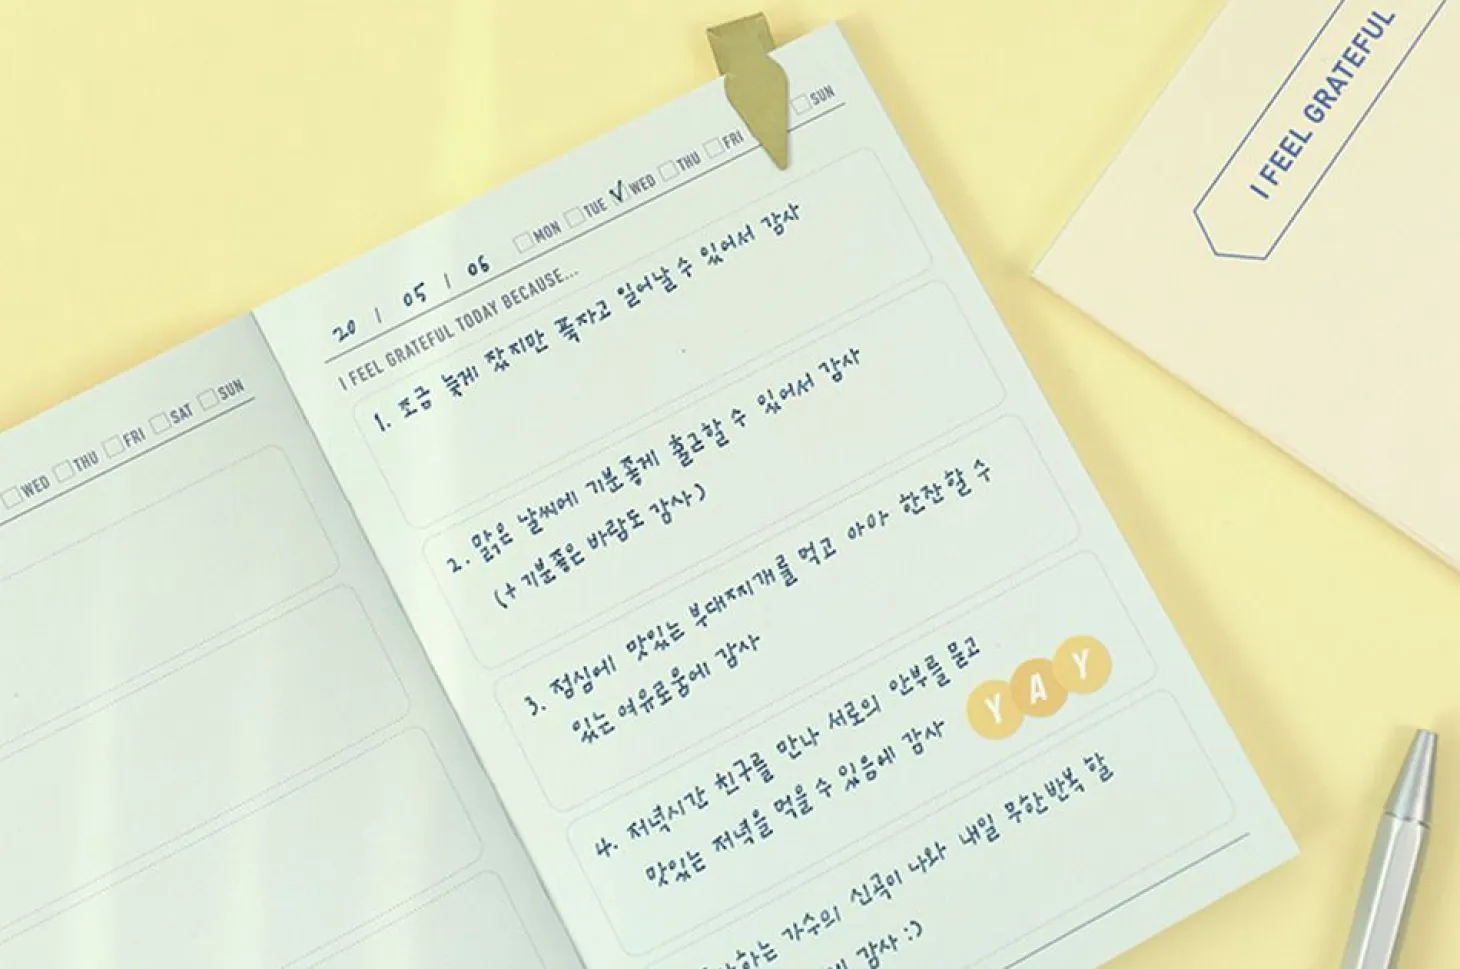 WED THU FRI SAT SUN
20 | 05 | 06 MON TUE WED THU FRI SUN
I FEEL GRATEFUL TODAY BECAUSE...
1. 조금 늦게 잤지만 푹자고 일어날 수 있어서 감사
2. 맑은 날씨에 기분좋게 출근할 수 있어서 감사
(+기분좋은 바람도 감사)
3. 점심에 맛있는 부대찌개를 먹고 아아 한잔 할 수
있는 여유로움에 감사
4. 저녁시간 친구를 만나 서로의 안부를 묻고
맛있는 저녁을 먹을 수 있음에 감사
YAY
가수의 신곡이 나와 내일 무한반복 할
감사 :)
I FEEL GRATEFUL